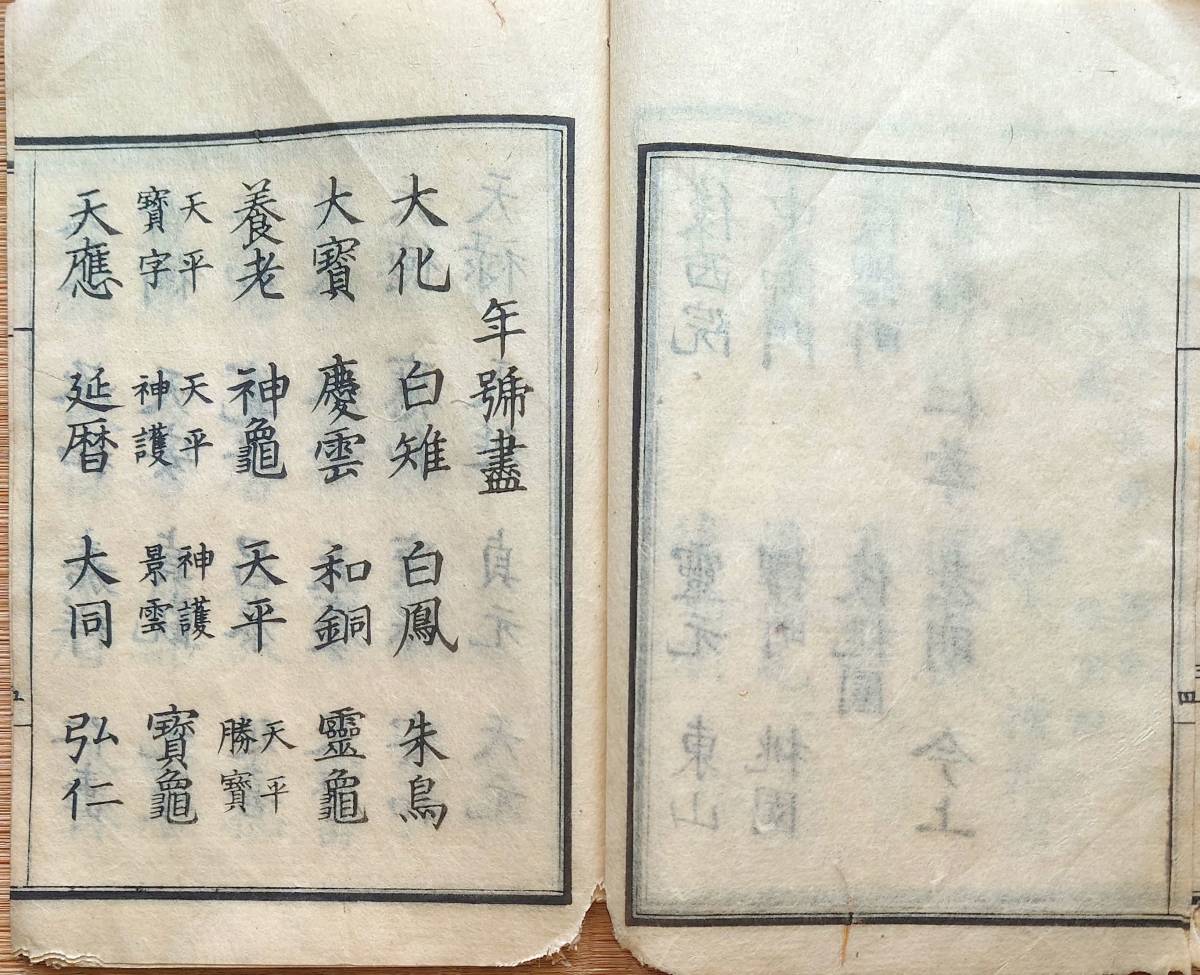 四
年號盡
大化 白雉 白鳳 朱鳥
大寶 慶雲 和銅 靈龜
養老 神龜 天平 天平勝寶
天平寶字 天平神護 神護景雲 寶龜
天應 延暦 大同 弘仁